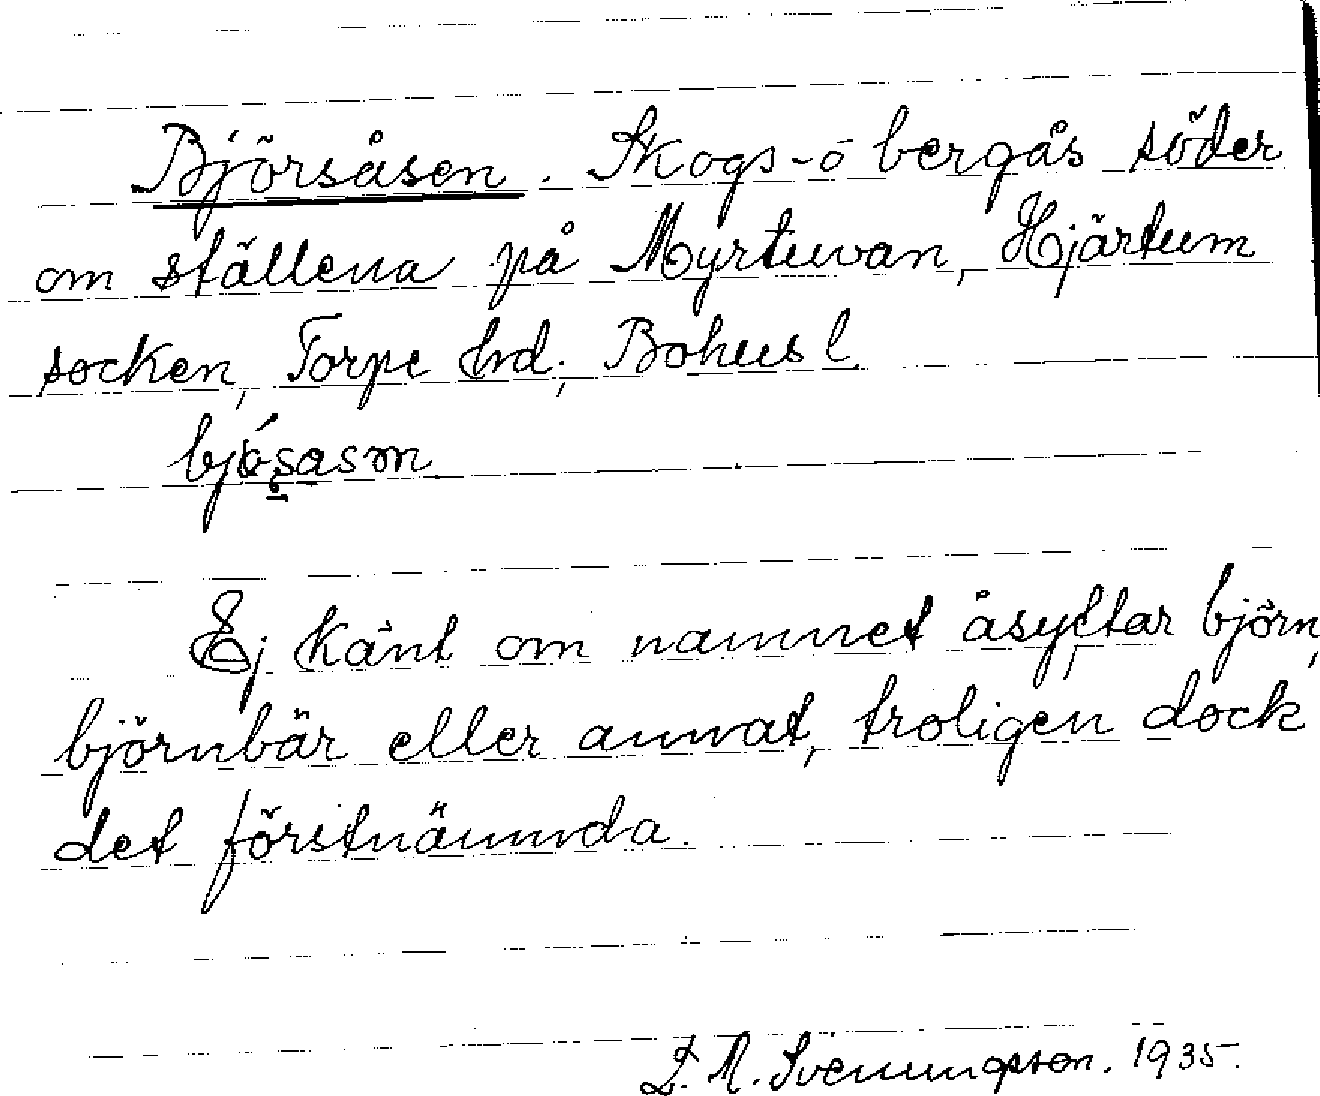 Björsåsen. Skogs- o bergås söder
om ställena på Myrtuvan, Hjärtum
socken, Torpe hd; Bohusl.
Ej känt om namnet åsyftar björn,
björnbär eller annat, troligen dock
det förstnämnda.
1935.